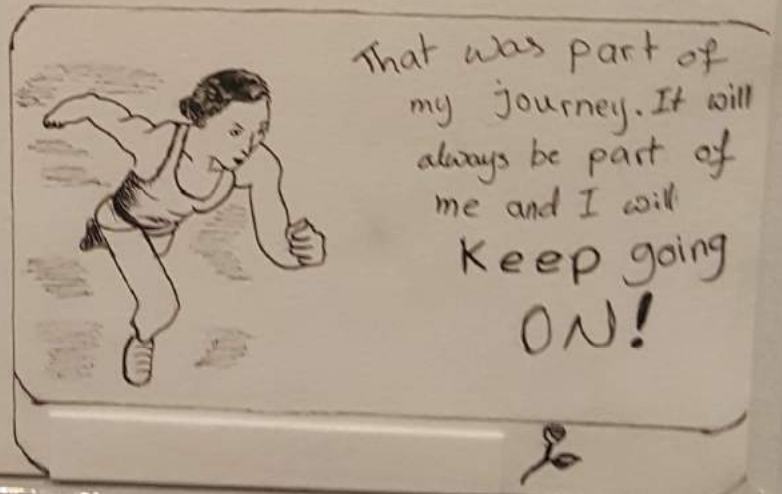 That was part of
my journey. It will
always be part of
me and I will
Keep going
ON!